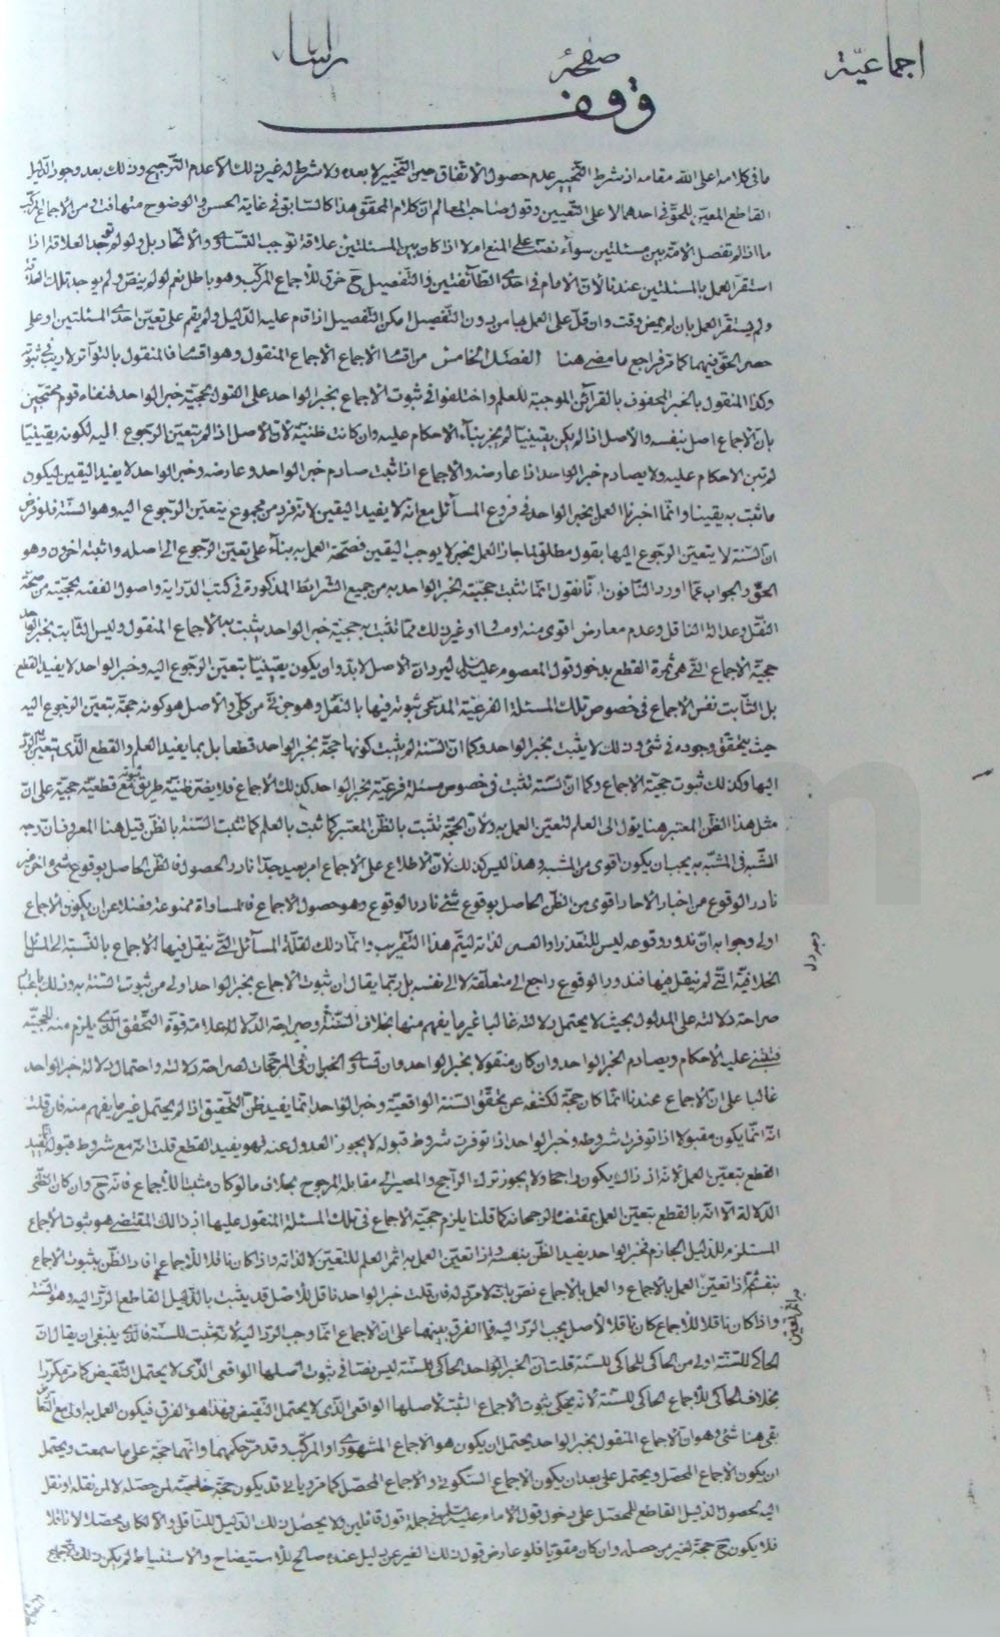 اجماعيّة
صفحهٔ
وقف
ما في كلامه اعلى الله مقامه اذ شرط التخيير عدم حصول الاتفاق حين التخيير لا بعده ولا شرط له غير ذلك الا عدم الترجيح وذلك بعد وجود الدليل
القاطع المعين للحق في احدهما لا على التعيين وقول صاحب المعالم ان كلام المحقق هذا كالسابق في غاية الحسن والوضوح من الاجماع المركب
ما اذا لم تفصل الامة بين مسئلتين سواء نصت على المنع ام لا اذا كان بين المسئلتين علاقة توجب التساوى والاتحاد بل ولو لم توجد العلاقة اذا
استقر العمل بالمسئلتين عندنا لان الامام في احدى الطائفتين والتفصيل ح خرق للاجماع المركب وهو باطل نعم لو لم ينص ولم يوجد تلك العلاقة
ولم يستقر العمل بان لم يمض وقت وان قل على العمل بها من دون التفصيل امكن التفصيل اذا قام عليه الدليل ولم يقم على تعين احدى المسئلتين او على
حصر الحق فيهما كما مر فراجع ما مضى هنا الفصل الخامس من اقسام الاجماع الاجماع المنقول وهو اقسام فالمنقول بالتواتر لا ريب في ثبوته
وكذا المنقول بالخبر المحفوف بالقرآئن الموجبة للعلم واختلفوا في ثبوت الاجماع بخبر الواحد على القول بحجية خبر الواحد فنفاه قوم محتجين
بان الاجماع اصل بنفسه والاصل اذا لم يكن يقينيا لم يجز بناء الاحكام عليه وان كانت ظنية لان الاصل اذا لم يتعين الرجوع اليه لكونه يقينيا
لم تبن الاحكام عليه ولا يصادم خبر الواحد اذا عارضه والاجماع اذا ثبت صادم خبر الواحد وعارضه وخبر الواحد لا يفيد اليقين ليكون
ما ثبت به يقينا وانما اخبرنا العمل بخبر الواحد في فروع المسائل مع انه لا يفيد اليقين لانه فرد من مجموع يتعين الرجوع اليه وهو السنة فلو فرض
ان السنة لا يتعين الرجوع اليها بقول مطلق لما جاز العمل بخبر لا يوجب اليقين فصحة العمل به بناء على تعين الرجوع الى اصله واثبته اخرون وهو
الحق والجواب عما اورد النافون انا نقول انما تثبت حجية الخبر الواحد به من جميع الشرائط المذكورة في كتب الدراية واصول الفقه بحجيته من صحة
النقل وعدالة الناقل وعدم معارض اقوى منه او مساو او غير ذلك مما تثبت به حجية خبر الواحد يثبت به الاجماع المنقول وليس الثابت بخبر الواحد
حجية الاجماع التي هي ثمرة القطع بدخول قول المعصوم عليه السلم ليرد ان الاصل لا بد وان يكون يقينيا يتعين الرجوع اليه وخبر الواحد لا يفيد القطع
بل الثابت نفس الاجماع في خصوص تلك المسئلة الفرعية المدعى ثبوته فيها بالنقل وهو جزئى من كلى والاصل هو كونه حجة يتعين الرجوع اليه
حيث يتحقق وجوده في شئ وذلك لا يثبت بخبر الواحد وكما ان السنة لم يثبت كونها حجة بخبر الواحد قطعا بل بما يفيد العلم والقطع الذى يتعين به الرد
اليها وكذلك ثبوت حجية الاجماع وكما ان السنة تثبت في خصوص مسئلة فرعية بخبر الواحد كذلك الاجماع فلا يضر ظنية طريق ثبوته مع قطعية حجيته على ان
مثل هذا الظن المعتبر هنا يؤل الى العلم لتعين العمل به ولان الحجة تثبت بالظن المعتبر كما ثبت بالعلم كما تثبت السنة بالظن قيل هنا المعروف ان وجه
الشبه في المشبه به يجب ان يكون اقوى من المشبه وهذا ليس كذلك لان الاطلاع على الاجماع امر بعيد جدا نادر الحصول فالظن الحاصل بوقوع شئ اخر غير
نادر الوقوع من اخبار الاحاد اقوى من الظن الحاصل بوقوع شئ نادر الوقوع وهو حصول الاجماع فالمساواة ممنوعة فضلا عن ان يكون الاجماع
اولى وجوابه ان ندور وقوعه ليس للتعذر او العسر لذاته ليتم هذا التقريب وانما ذلك لقلة المسائل التي ينقل فيها الاجماع بالنسبة الى المسائل
الخلافية التي لم ينقل فيها فندور الوقوع راجع الى متعلقه لا الى نفسه بل ربما يقال ان ثبوت الاجماع بخبر الواحد اولى من ثبوت السنة به وذلك باعتبار
صراحة دلالته على المدلول بحيث لا يحتمل دلالته غالبا غير ما يفهم منها بخلاف السنة وصراحة الدلالة علامة قوة التحقق الذى يلزم منه الحجية
فتبنى عليه الاحكام ويصادم الخبر الواحد وان كان منقولا بخبر الواحد وان تساوى الخبران في المرجحات لصراحة دلالته واحتمال دلالة خبر الواحد
غالبا على ان الاجماع عندنا انما كان حجة لكشفه عن تحقق السنة الواقعية وخبر الواحد انما يفيد ظن التحقيق اذا لم يحتمل غير ما يفهم منه فان قلت
انه انما يكون مقبولا اذا توفرت شروطه وخبر الواحد اذا توفرت شروط قبوله لا يجوز العدول عنه فهو يفيد القطع قلت انه مع شروط قبوله يفيد
القطع بتعين العمل لانه اذ ذاك يكون راجحا ولا يجوز ترك الراجح والمصير الى مقابله المرجوح بخلاف ما لو كان مثبتا للاجماع فانه ح وان كان ظنى
الدلالة الا انه بالقطع يتعين العمل بمقتضى الرجحانية كما قلنا يلزم حجية الاجماع في تلك المسئلة المنقول عليها اذ ذاك المقتضى هو ثبوت الاجماع
المستلزم للدليل الجازم فخبر الواحد يفيد الظن بنفسه واذا تعين العمل به اثمر العلم للتعين لا لذاته واذا كان ناقلا للاجماع افاد الظن بثبوت الاجماع
بنفسه ثم اذا تعين العمل بالاجماع والعمل بالاجماع نص بانه لا مرد له فان قلت خبر الواحد ناقل للاصل قد يثبت بالدليل القاطع الرد اليه وهو السنة
واذا كان ناقلا للاجماع كان ناقلا لاصل يجب الرد اليه فما الفرق بينهما على ان الاجماع انما وجب الرد اليه لانه مثبت للسنة فالذى ينبغى ان يقال ان
الحاكى للسنة اولى من الحاكى للحاكى للسنة قلت ان الخبر الواحد الحاكى للسنة ليس نصا في ثبوت اصلها الواقعى الذى لا يحتمل النقيض كما مر مكررا
بخلاف الحاكى للاجماع الحاكى للسنة لانه يحكى ثبوت الاجماع المثبت لاصلها الواقعى الذى لا يحتمل النقيض فهذا هو الفرق فيكون العمل به اولى مع التعارض
بقى هنا شئ وهو ان الاجماع المنقول بخبر الواحد يحتمل ان يكون هو الاجماع المشهورى او المركب وقد مر حكمهما وانهما حجة على ما سمعت ويحتمل
ان يكون الاجماع المحصل ويحتمل على بعد ان يكون الاجماع السكوتى والاجماع المحصل كما مر ويأتى قد يكون حجة خاصة لمن حصله لا لمن نقله او نقل
اليه بحصول الدليل القاطع للمحصل على دخول قول الامام عليه السلم في جملة قول قائلين ولا يحصل ذلك الدليل للناقل والا لكان محصلا لا ناقلا
فلا يكون ح حجة لغير من حصله وان كان مقويا فلو عارض قول ذلك الغير عن دليل عنده صالح للاستيضاح والاستنباط لم يكن ذلك الاجماع